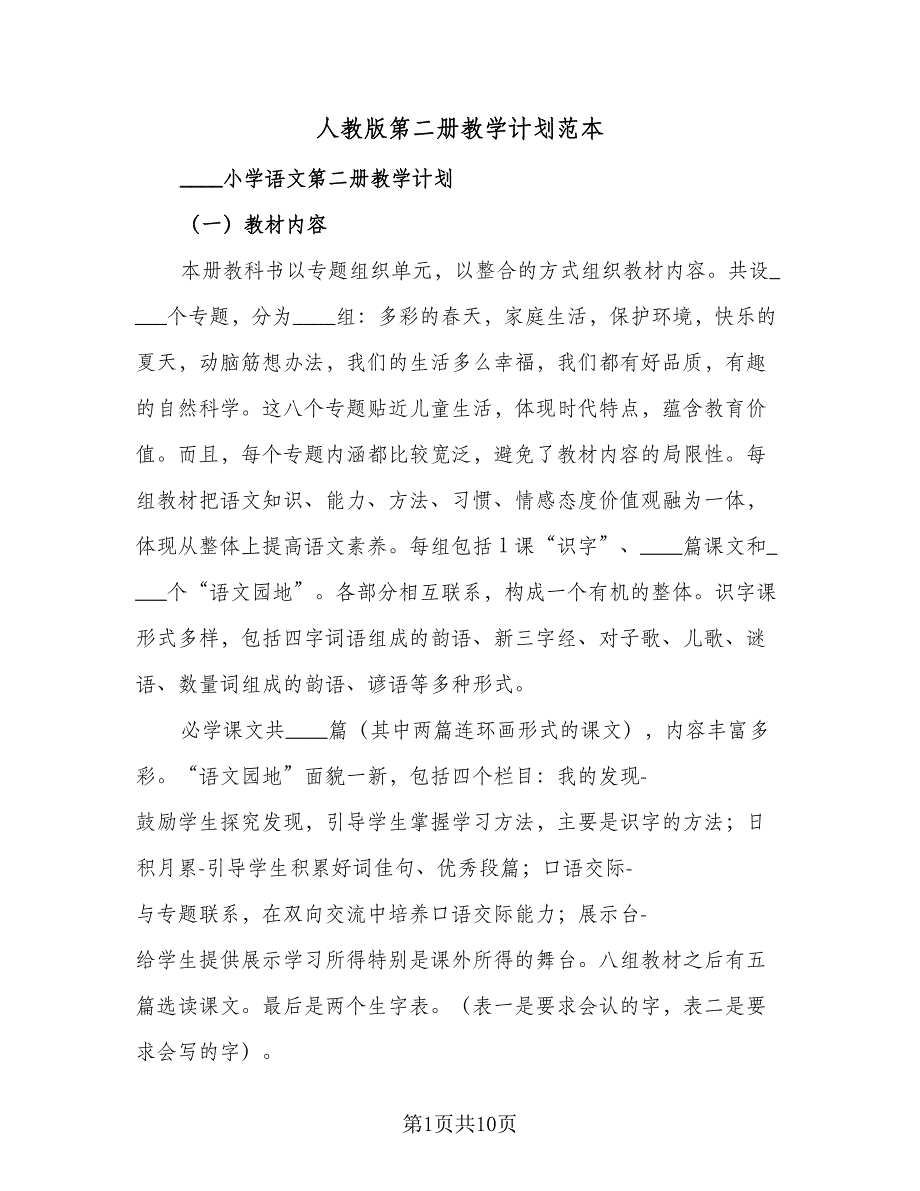 人教版第二册教学计划范本
____小学语文第二册教学计划
（一）教材内容
本册教科书以专题组织单元，以整合的方式组织教材内容。共设_
___个专题，分为____组：多彩的春天，家庭生活，保护环境，快乐的
夏天，动脑筋想办法，我们的生活多么幸福，我们都有好品质，有趣
的自然科学。这八个专题贴近儿童生活，体现时代特点，蕴含教育价
值。而且，每个专题内涵都比较宽泛，避免了教材内容的局限性。每
组教材把语文知识、能力、方法、习惯、情感态度价值观融为一体，
体现从整体上提高语文素养。每组包括1课“识字”、____篇课文和_
___个“语文园地”。各部分相互联系，构成一个有机的整体。识字课
形式多样，包括四字词语组成的韵语、新三字经、对子歌、儿歌、谜
语、数量词组成的韵语、谚语等多种形式。
必学课文共____篇（其中两篇连环画形式的课文），内容丰富多
彩。“语文园地”面貌一新，包括四个栏目：我的发现-
鼓励学生探究发现，引导学生掌握学习方法，主要是识字的方法；日
积月累-引导学生积累好词佳句、优秀段篇；口语交际-
与专题联系，在双向交流中培养口语交际能力；展示台-
给学生提供展示学习所得特别是课外所得的舞台。八组教材之后有五
篇选读课文。最后是两个生字表。（表一是要求会认的字，表二是要
求会写的字）。
第1页共10页